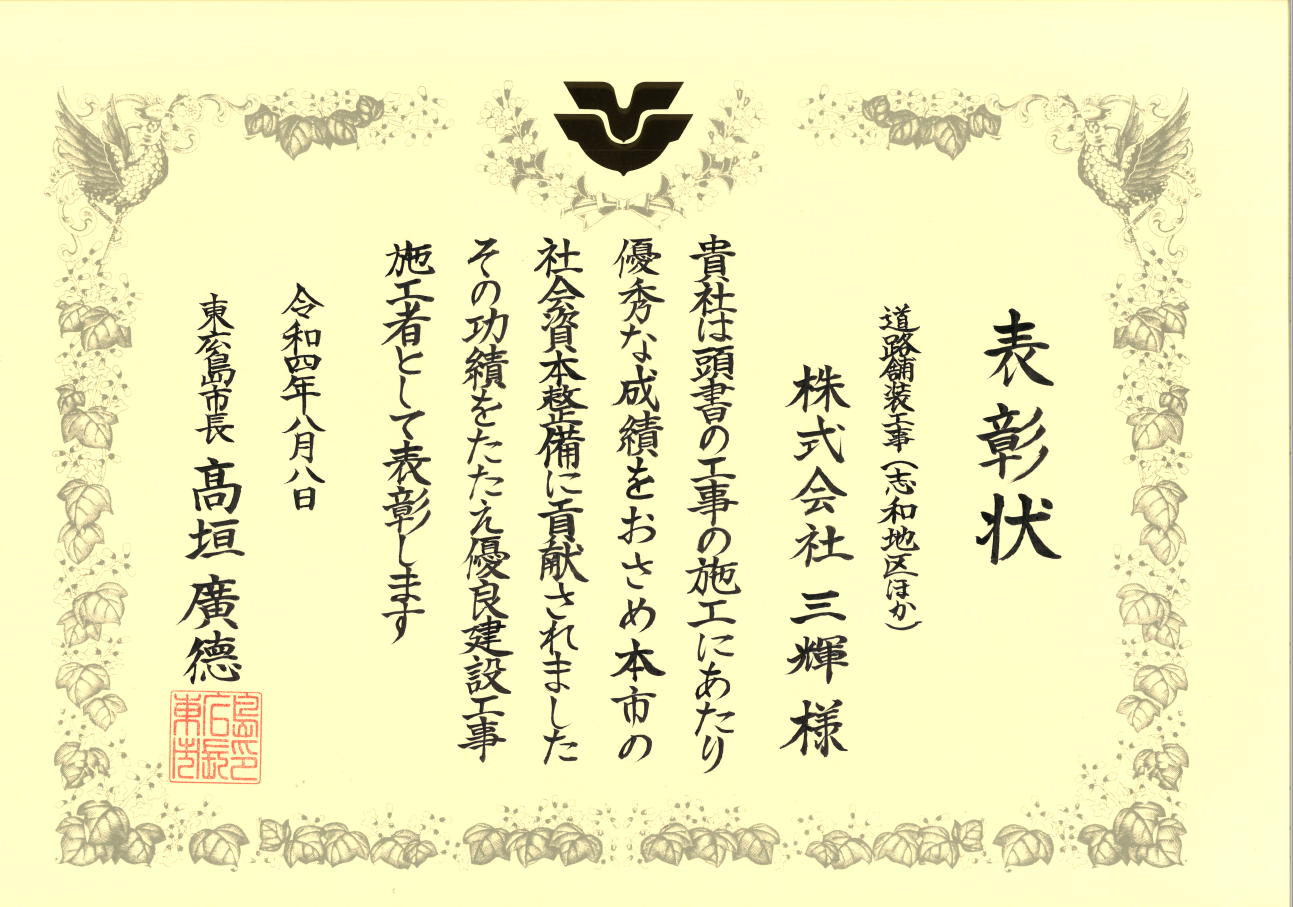 表彰状
道路舗装工事(志和地区ほか)
株式会社 三輝 様
貴社は頭書の工事の施工にあたり
優秀な成績をおさめ本市の
社会資本整備に貢献されました
その功績をたたえ優良建設工事
施工者として表彰します
令和四年八月八日
東広島市長 髙垣 廣德
東広島市長印